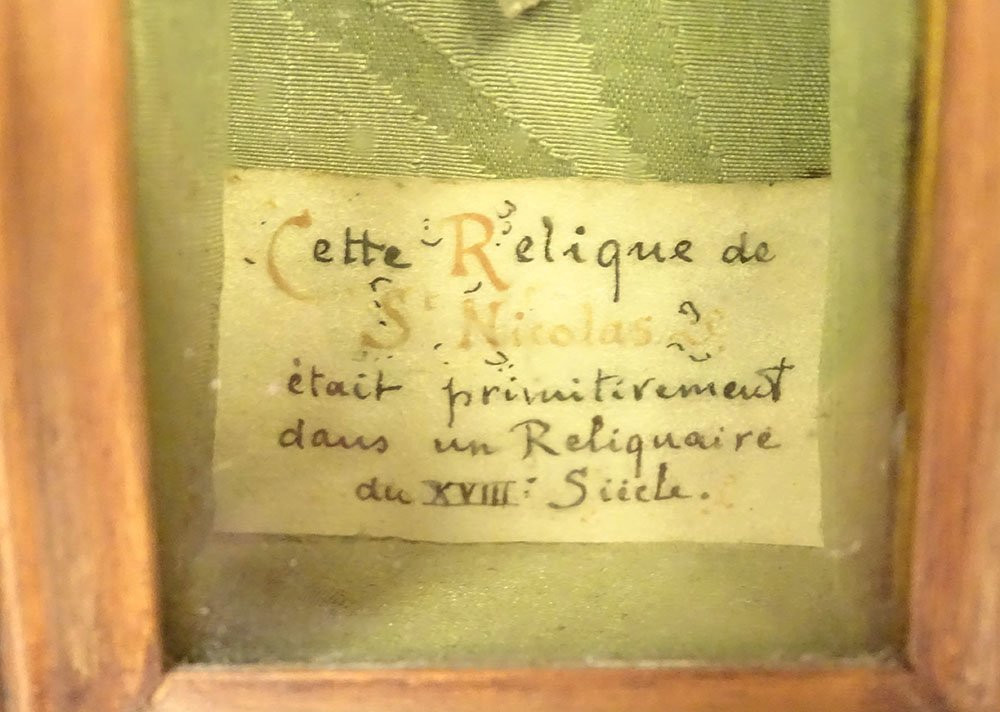 Cette Relique de
St Nicolas
était primitivement
dans un Reliquaire
du XVIII: Siècle.